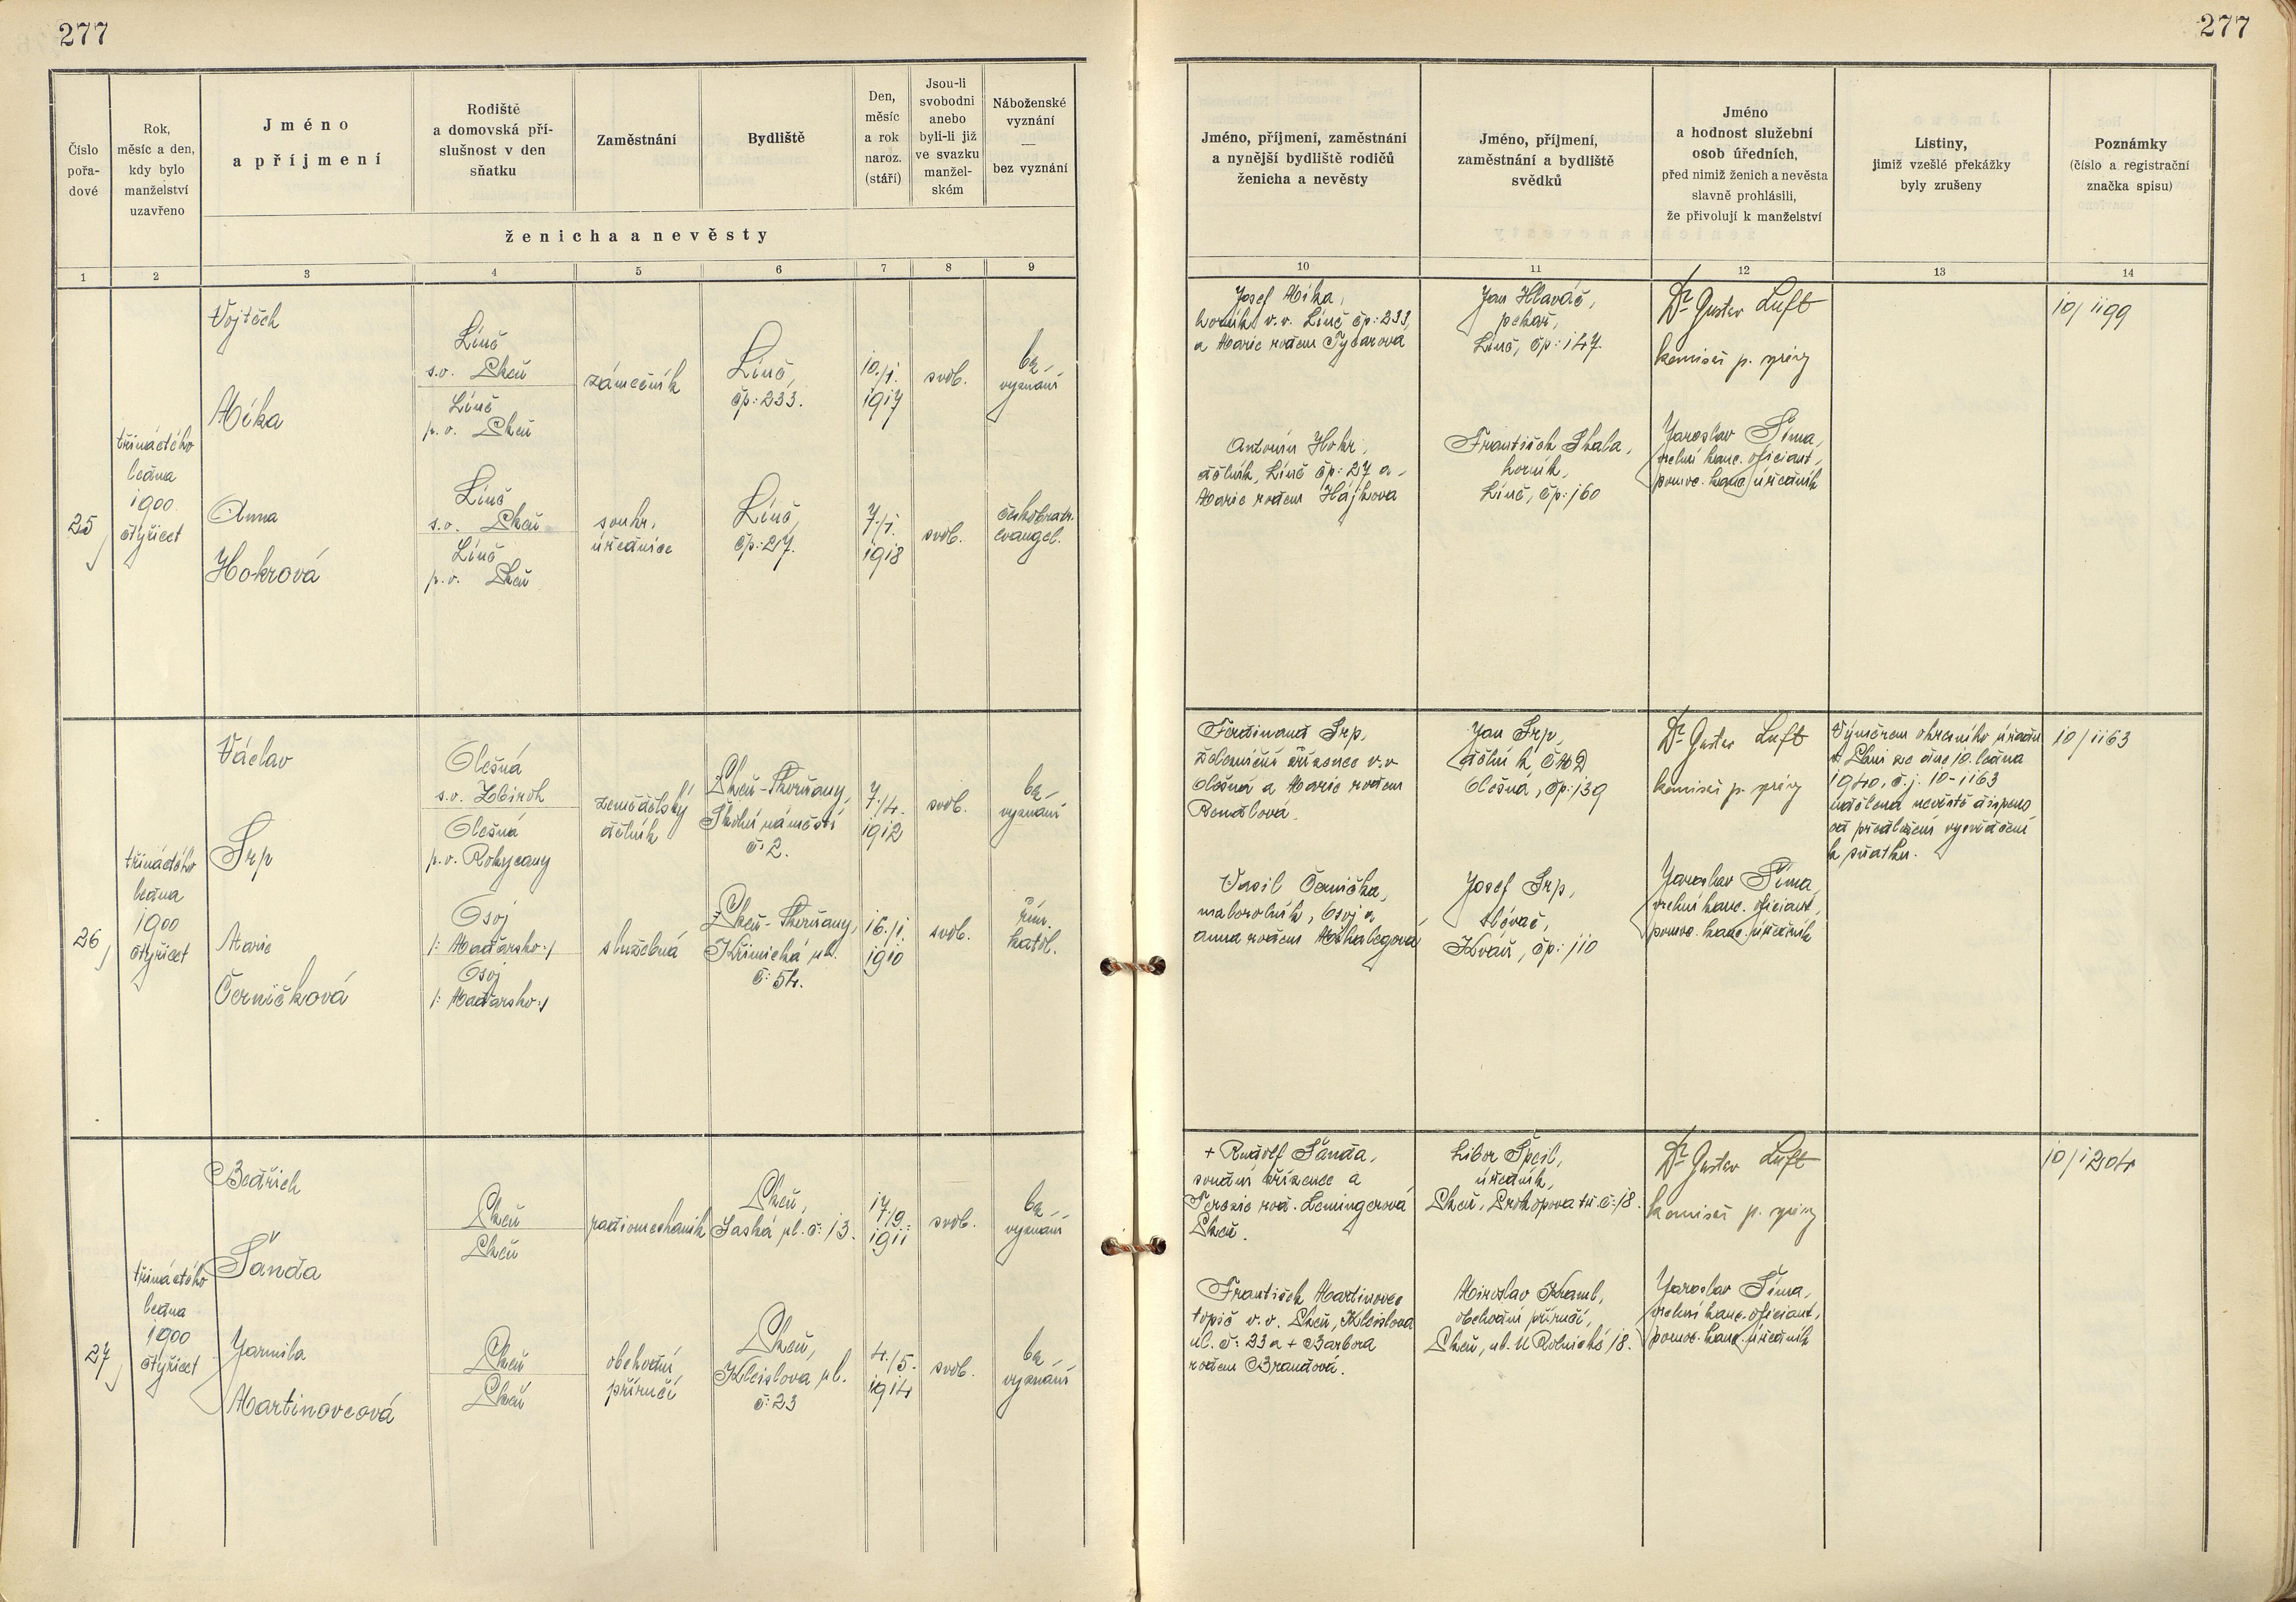 277
277
Číslo
pořa-
dové
Rok,
měsíc a den,
kdy bylo
manželství
uzavřeno
Jméno
a příjmení
Rodiště
a domovská pří-
slušnost v den
sňatku
Zaměstnání
Bydliště
Den,
měsíc
a rok
naroz.
(stáří)
Jsou-li
svobodni
anebo
byli-li již
ve svazku
manžel-
ském
Náboženské
vyznání
—
bez vyznání
ženicha a nevěsty
Jméno, příjmení, zaměstnání
a nynější bydliště rodičů
ženicha a nevěsty
Jméno, příjmení,
zaměstnání a bydliště
svědků
Jméno
a hodnost služební
osob úředních,
před nimiž ženich a nevěsta
slavně prohlásili,
že přivolují k manželství
Listiny,
jimiž vzešlé překážky
byly zrušeny
Poznámky
(číslo a registrační
značka spisu)
1 2 3 4 5 6 7 8 9 10 11 12 13 14
25
třináctého
ledna
1900
čtyřicet
Vojtěch
Míka
Líně
s.o. Plzeň
Líně
p.o. Plzeň
zámečník
Líně,
čp: 233.
10./1.
1917
svob.
bez
vyznání
Anna
Hokrová
Líně
s.o. Plzeň
Líně
p.o. Plzeň
soukr.
úřednice
Líně,
čp: 27.
7./1.
1918
svob.
českobratr.
evangel.
Josef Míka,
horník v.v. Líně čp: 233,
a Marie rodem
Antonín Hokr,
dělník, Líně čp: 27 a
Marie rodem Hájkova
Jan Hlaváč,
pekař,
Líně, čp: 147.
František Skala,
horník,
Líně, čp: 160
Dr Gustav Luft
komisař p. správy
Jaroslav Šíma,
kanc. oficiant,
pomoc. kanc. úředník
10/1199
26
třináctého
ledna
1900
čtyřicet
Václav
Srp
Olešná
s.o. Zbiroh
Olešná
p.o. Rokycany
zemědělský
dělník
Plzeň-Skvrňany,
Školní náměstí
č: 2.
7./4.
1912
svob.
bez
vyznání
Marie
Černičková
Osoj
/: Maďarsko :/
Osoj
/: Maďarsko :/
služebná
Plzeň-Skvrňany,
Křimická ul.
č: 54.
16./1.
1910
svob.
řím.
katol.
Ferdinand Srp,
železniční zřízenec v.v.
Olešná a Marie rodem
Rendlová.
Vasil Černička,
maborolník, Osoj a
Anna rodem Mihalegová
Jan Srp,
dělník ČMD
Olešná, čp: 139
Josef Srp,
slévač,
Kváň, čp: 110
Dr Gustav Luft
komisař p. správy
Jaroslav Šíma,
kanc. oficiant,
pomoc. kanc. úředník
Výměrem okresního úřadu
v Plzni ze dne 10. ledna
1940, č.j. 10-1163
udělena nevěstě dispens
od předložení vysvědčení
k sňatku.
10/1163
27
třináctého
ledna
1900
čtyřicet
Bedřich
Šanda
Plzeň
Plzeň
radiomechanik
Plzeň,
Saská ul. č: 13.
17./9.
1911
svob.
bez
vyznání
Jarmila
Martinovcová
Plzeň
Plzeň
obchodní
příručí
Plzeň,
Kleislova ul.
č: 23
4./5.
1914
svob.
bez
vyznání
+ Rudolf Šanda,
soudní zřízenec a
Terezie rod. Lemingerová
Plzeň.
František Martinovec
topič v.v. Plzeň, Kleislova
ul. č: 23 a + Barbora
rodem Brandová.
Libor Špeil,
úředník,
Plzeň, Prokopova tř. č: 18.
Miroslav Kraml,
obchodní příručí,
Plzeň, ul. U Rolnické 18.
Dr Gustav Luft
komisař p. správy
Jaroslav Šíma,
kanc. oficiant,
pomoc. kanc. úředník
10/1204